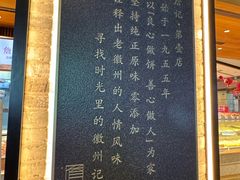 启记·第壹店
始于一九五五年
以“良心做饼 善心做人”为家
坚持纯正原味 零添加
诠释出老徽州的人情风味
寻找时光里的徽州记